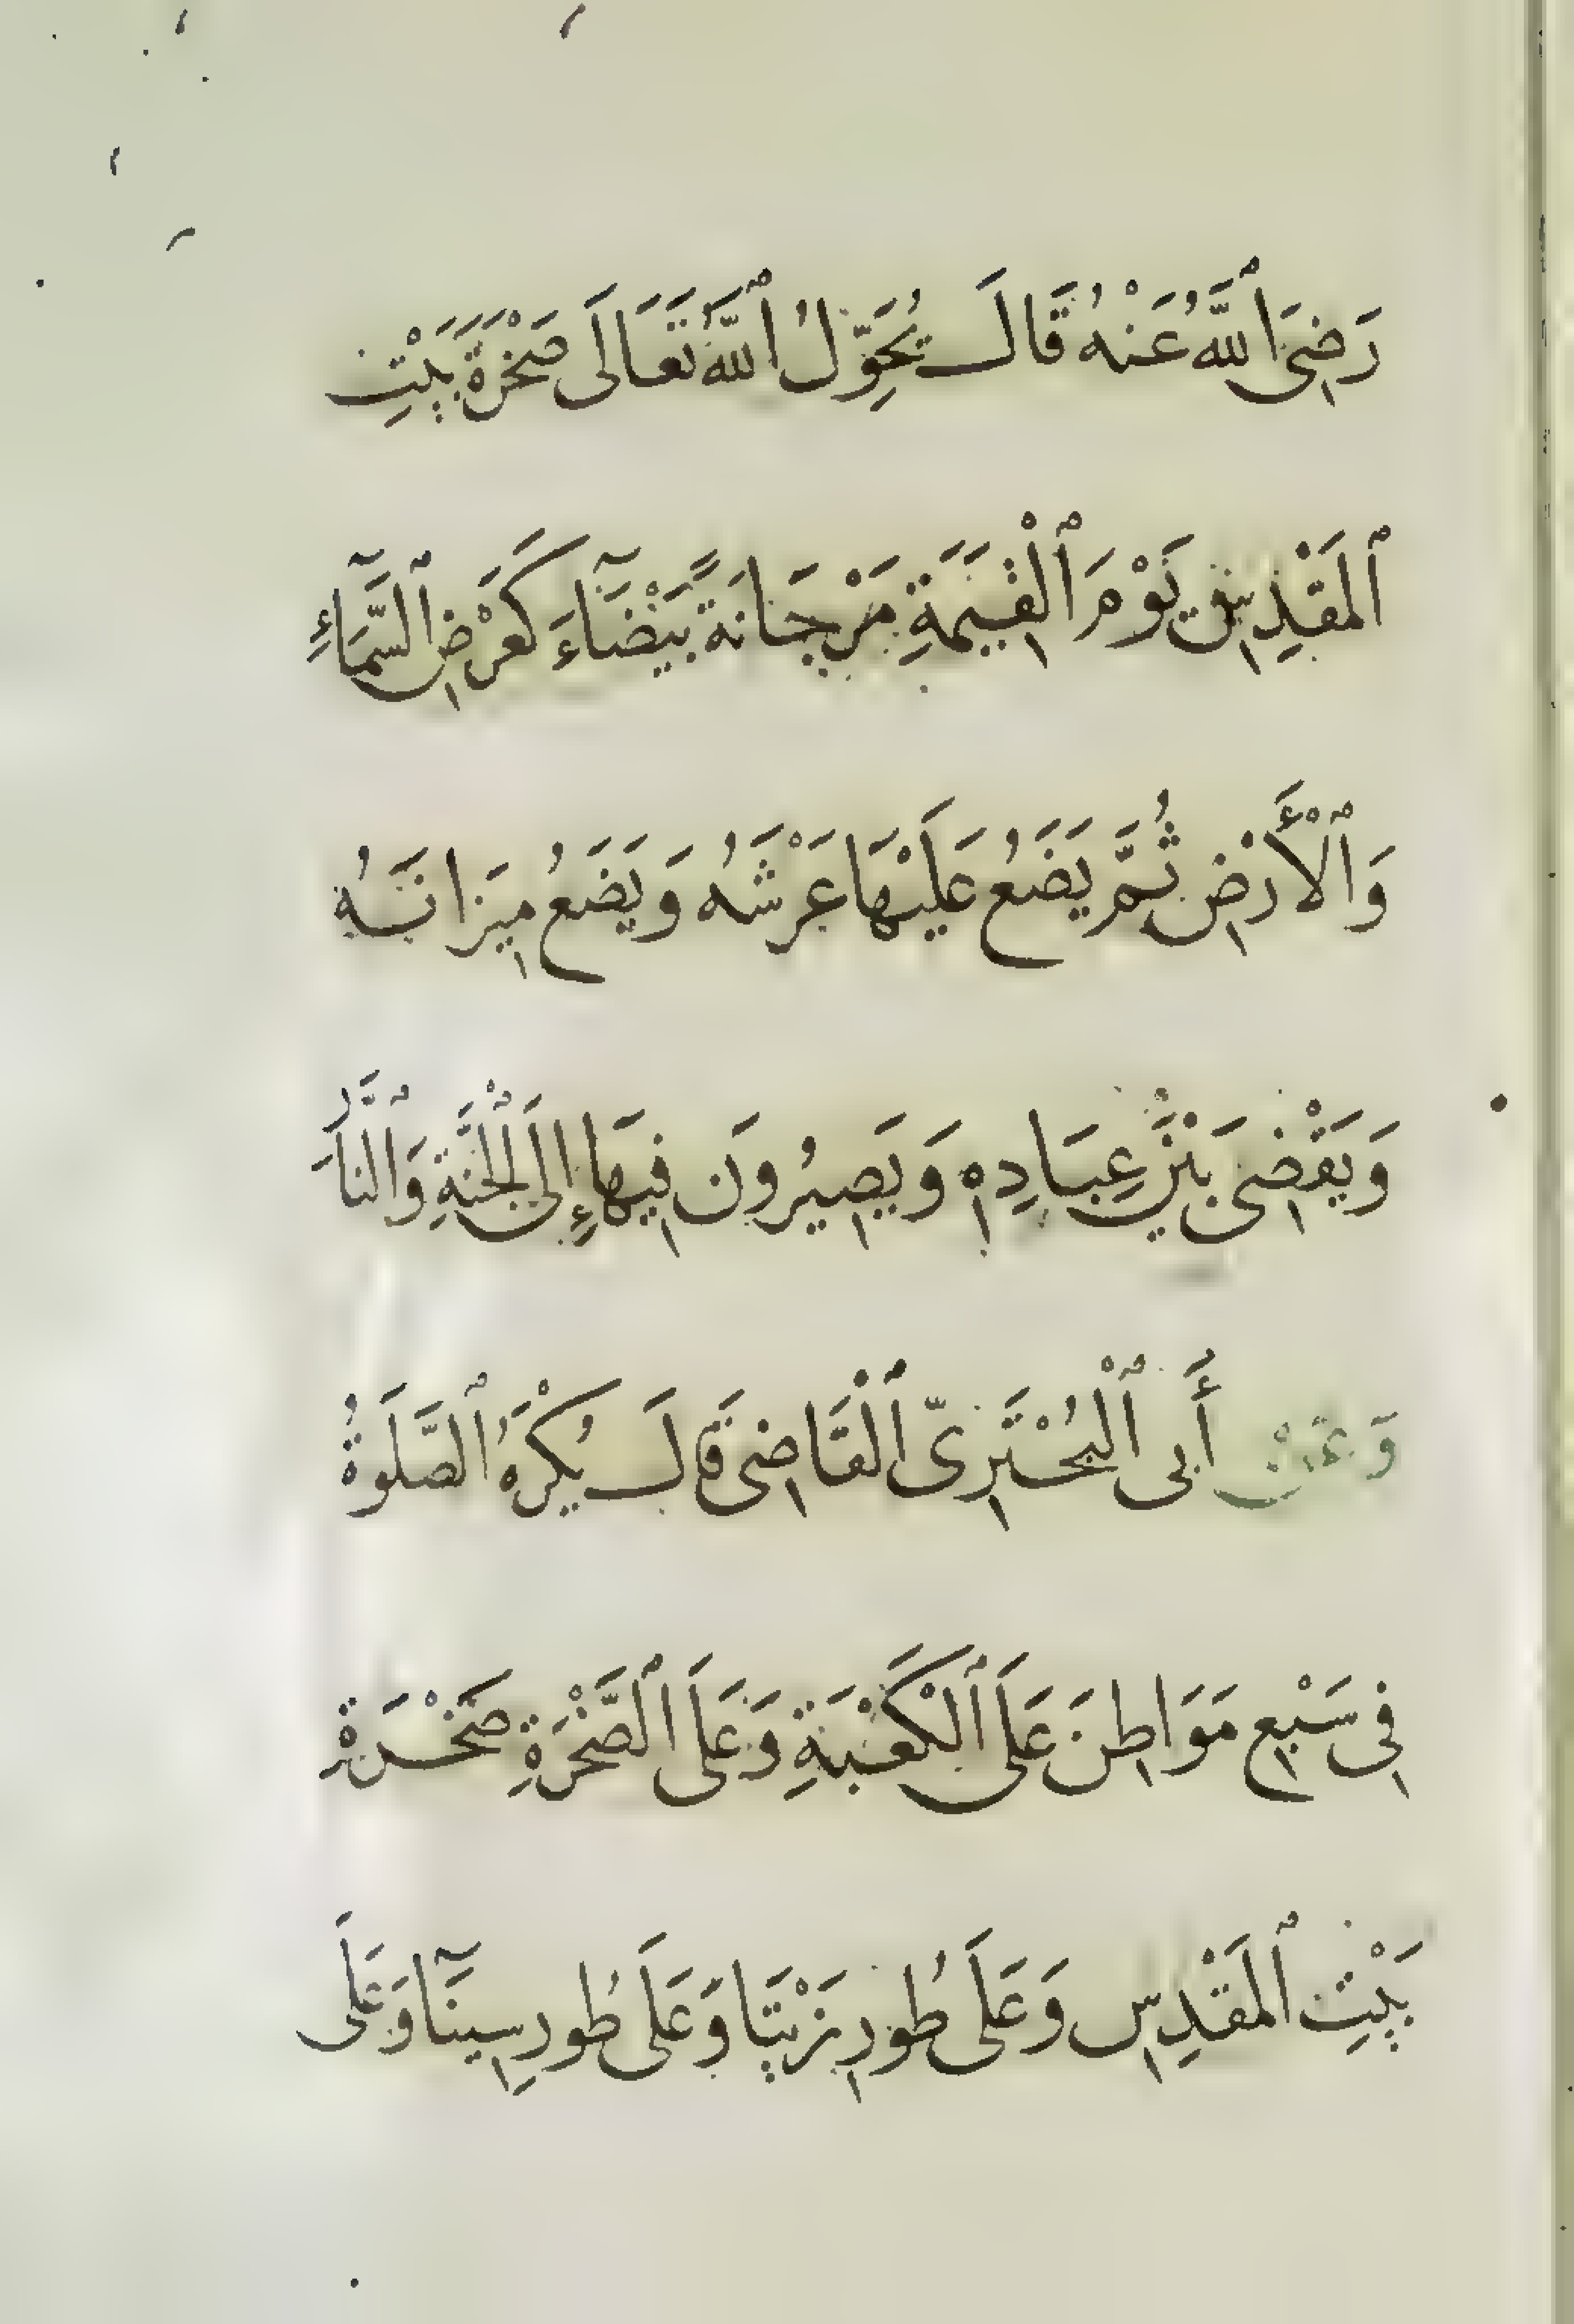 رَضِىَ ٱللَّهُ عَنْهُ قَالَ يُحَوِّلُ ٱللَّهُ تَعَالَى صَخْرَةَ بَيْتِ
ٱلمَقْدِسِ يَوْمَ ٱلْقِيَمَةِ مَرْجَانَةً بَيْضَآءَ كَعَرْضِ ٱلسَّمَآءِ
وَٱلْأَرْضِ ثُمَّ يَضَعُ عَلَيْهَا عَرْشَهُ وَيَضَعُ مِيزَانَهُ
وَيَقْضِى بَيْنَ عِبَادِهِ وَيَصِيرُونَ فِيهَا إِلَى ٱلْجَنَّةِ وَٱلنَّارِ
وَعَنْ أَبِى ٱلْبُحْتَرِىّ ٱلْقَاضِى قَالَ يُكْرَهُ ٱلصَّلَوةُ
فِى سَبْعِ مَوَاطِنَ عَلَى ٱلْكَعْبَةِ وَعَلَى ٱلصَّخْرَةِ صَخْرَةِ
بَيْتِ ٱلمَقْدِسِ وَعَلَى طُورِ زَيْتَا وَعَلَى طُورِ سِينَآ وَعَلَى